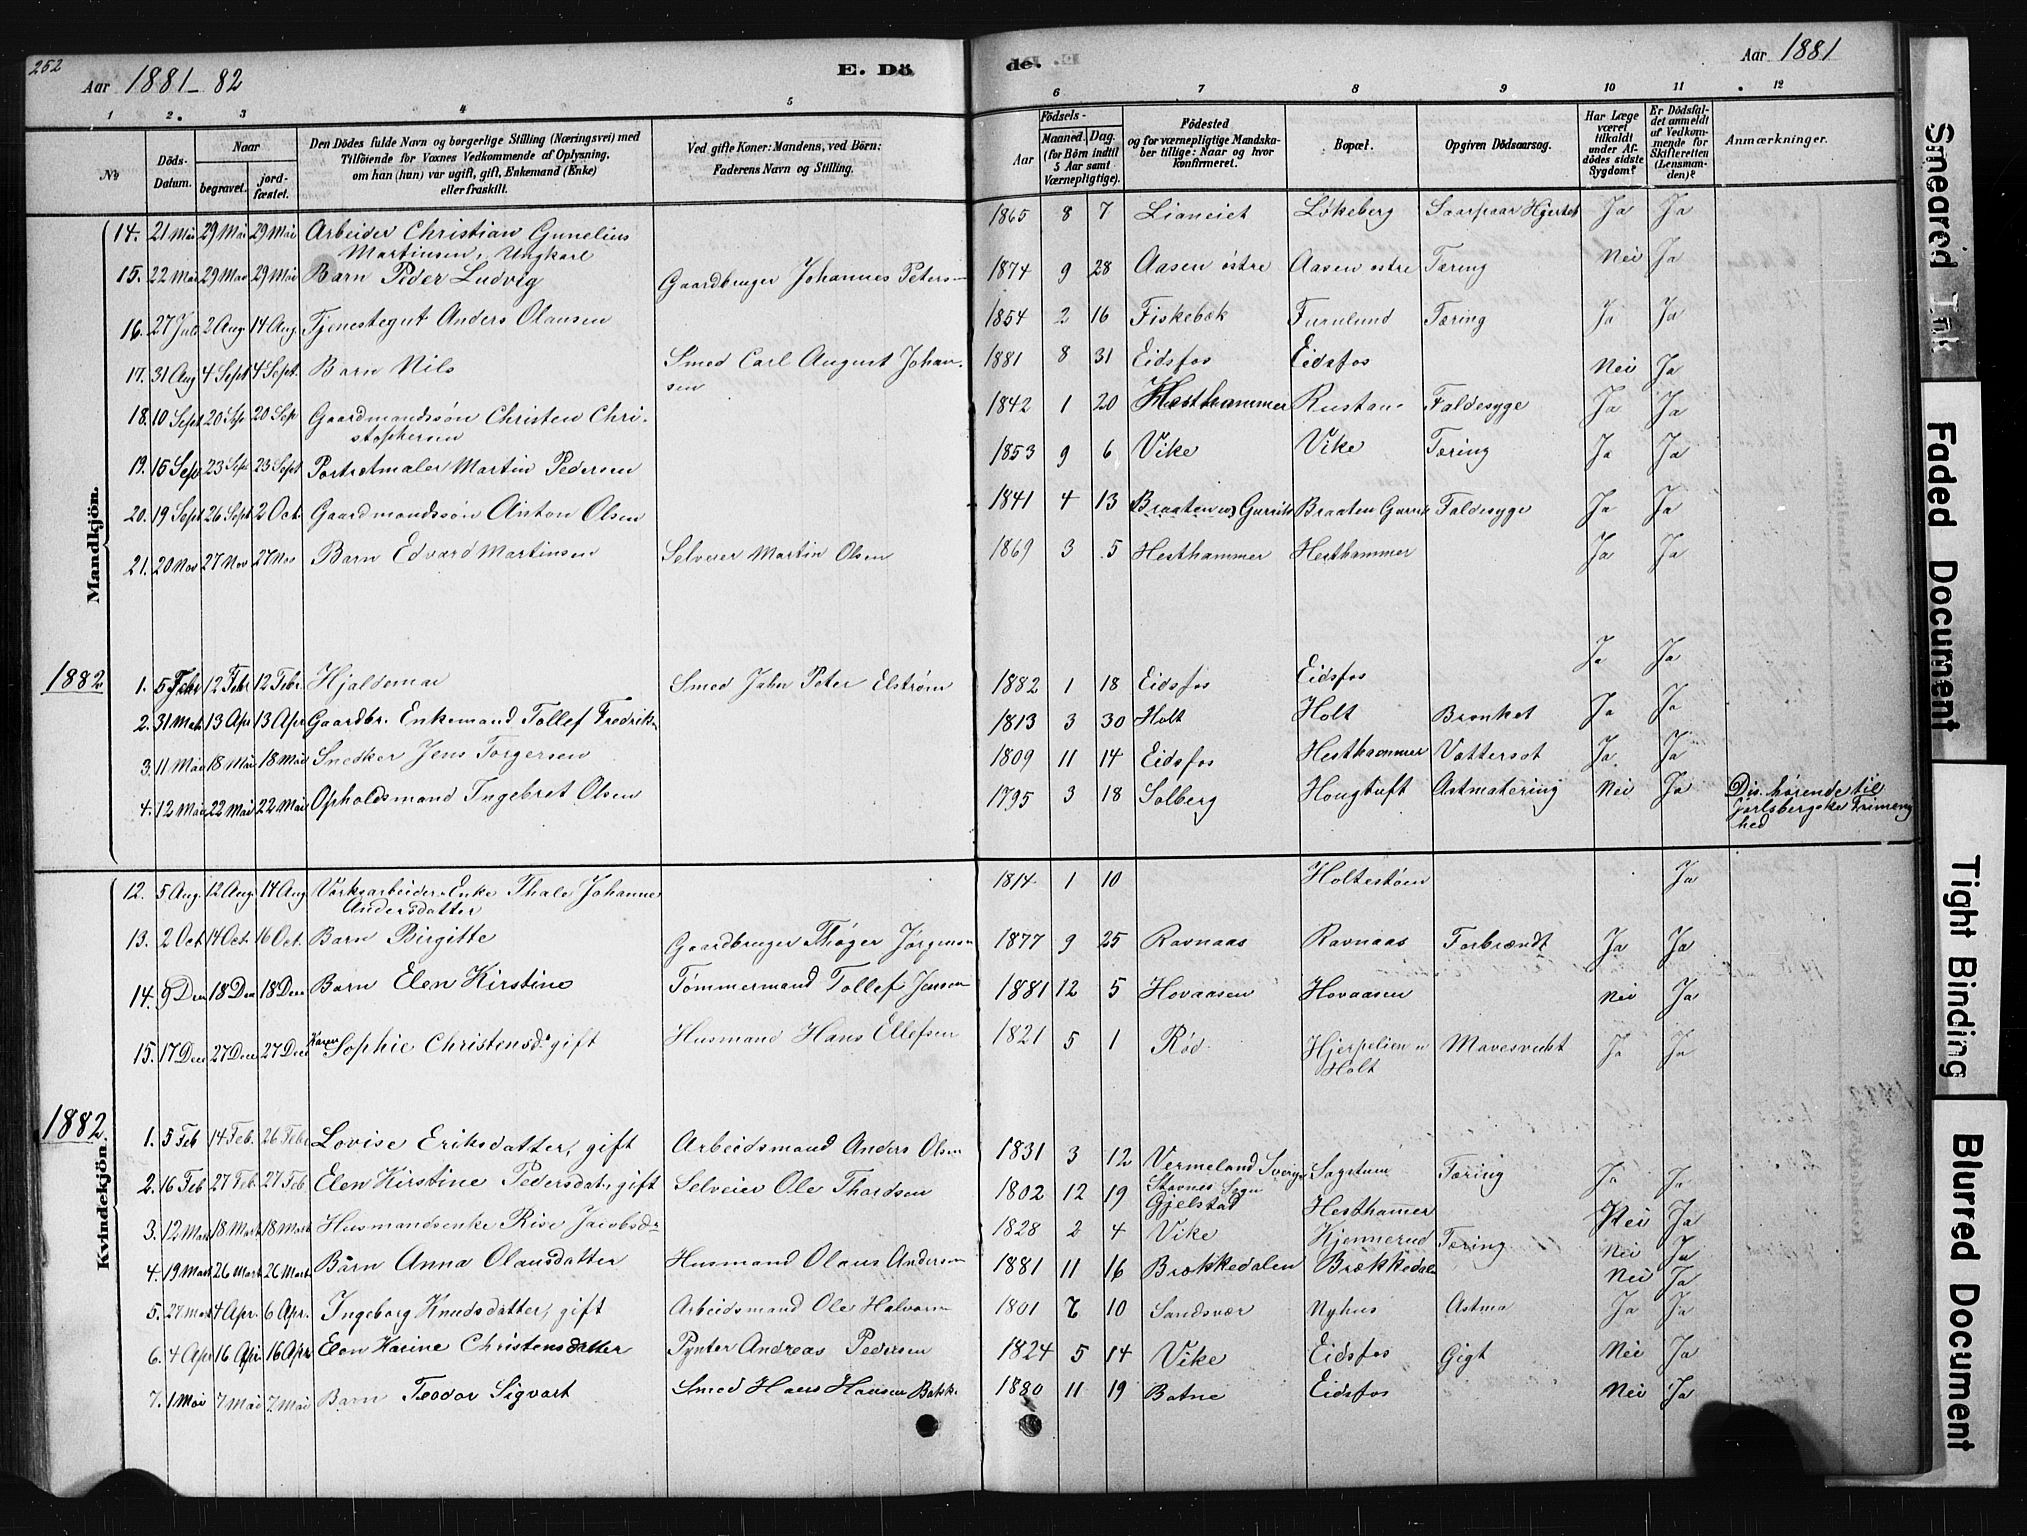 252
Aar 1881-82
E. Dö
de.
Aar 1881
1 2. 3 4 5 6 7 8 9 10 11 12
No
Döds-
Datum.
Naar
begravet.
jord-
fæstet.
Den Dödes fulde Navn og borgerlige Stilling (Næringsvei) med
Tilföiende for Voxnes Vedkommende af Oplysning,
om han (hun) var ugift, gift, Enkemand (Enke)
eller fraskilt.
Ved gifte Koner: Mandens, ved Börn:
Faderens Navn og Stilling.
Födsels-
Aar
Maaned. Dag.
(for Börn indtil
5 Aar samt
Værnepligtige).
Födested
og for værnepligtige Mandska-
ber tillige: Naar og hvor
konfirmeret.
Bopæl.
Opgiven Dödsaarsag.
Har Læge
været
tilkaldt
under Af-
dödes sidste
Sygdom?
Er Dödsfal-
det anmeldt
af Vedkom-
mende for
Skifteretten
(Lensman-
den)?
Anmærkninger.
Mandkjön.
14. 21 Mai 29 Mai 29 Mai Arbeider Christian Gunelius
Martinsen, Ungkarl 1865 8 7 Lianeiet Løkeberg Saarpaa Hjertet Ja Ja
15. 22 Mai 29 Mai 29 Mai Barn Peder Ludvig Gaardbruger Johannes Petersen 1874 9 28 Aasen østre Aasen østre Tæring Nei Ja
16. 27 Juli 2 Aug 14 Aug. Tjenestegut Anders Olausen 1854 2 16 Fiskebæk Furulund Tæring Ja Ja
17. 31 Aug 4 Sept 4 Sept. Barn Nils Smed Carl August Johan-
sen 1881 8 31 Eidsfos Eidsfos Nei Ja
18. 10 Sept 20 Sep 20 Sep Gaardmandssøn Christen Chri-
stophersen 1842 1 20 Hesthammer Rustan Faldesyge Ja Ja
19. 15 Sep. 23 Sep 23 Sept Portretmaler Martin Pedersen 1853 9 6 Vike Vike Tæring Ja Ja
20. 19 Sept 26 Sept 2 Oct. Gaardmandssøn Anton Olsen 1841 4 13 Braaten Braaten Faldesyge Ja Ja
21. 20 Nov 27 Nov 27 Nov Barn Edvard Martinsen Selveier Martin Olsen 1869 3 5 Hesthammer Hesthammer Ja Ja
1882
1. 5 Febr 12 Febr 12 Febr. Hjaldemar Smed John Peter Elstrøm 1882 1 18 Eidsfos Eidsfos Ja Ja
2. 31 Mart 13 Apr 13 Apr Gaardbr. Enkemand Tollef Fredriks. 1813 3 30 Holt Holt Bronket Ja Ja
3. 11 Mai 18 Mai 18 Mai Snedker Jens Torgersen 1809 11 14 Eidsfos Hesthammer Vattersot Ja Ja
4. 12 Mai 22 Mai 22 Mai Opholdsmand Ingebret Olsen 1795 3 18 Solberg Hougtuft Astmatering Nei Ja Dis. hørende til
Jarlsbergske Frimenig
hed
Kvindekjön.
12. 5 Aug 12 Aug 14 Aug Værksarbeider-Enke Thale Johanne
Andersdatter 1814 1 10 Holtestøen Ja
13. 2 Oct. 14 Oct. 16 Oct. Barn Birgitte Gaardbruger Thøger Jørgensen 1877 9 25 Ravnaas Ravnaas Forbrændt Ja Ja
14. 9 Dec 18 Dec 18 Dec Barn Elen Kirstine Tømmermand Tollef Jensen 1881 12 5 Hovaasen Hovaasen Nei Ja
15. 17 Dec 27 Dec 27 Dec Karen Sophie Christensd. gift Husmand Hans Ellefsen 1821 5 1 Rød Hjerpelien u
Holt Mavesvækt Ja Ja
1882
1. 5 Feb 14 Feb. 26 Feb Lovise Eriksdatter, gift Arbeidsmand Anders Olsen 1831 3 12 Vermeland Sverige
Stavnes Sogn Sagstuen Tæring Ja Ja
2. 16 Feb 27 Feb. 27 Feb Elen Kirstine Pedersdat., gift Selveier Ole Thordsen 1802 12 19 Gjelstad Hesthammer Nei Ja
3. 12 Mart 18 Mart 18 Mart Husmandsenke Rise Jacobsd. 1828 2 4 Vike Kjennerud Tæring Nei Ja
4. 19 Mart 26 Mart 26 Mart Barn Anna Olausdatter Husmand Olaus Andersen 1881 11 16 Brækkedalen Brækkedalen Nei Ja
5. 27 Mart 4 Apr. 6 Apr. Ingeborg Knudsdatter, gift Arbeidsmand Ole Halvorsen 1801 7 10 Sandsvær Nyhus Astma Ja Ja
6. 4 Apr 16 Apr. 16 Apr. Elen Karine Christensdatter Pynter Andreas Pedersen 1824 5 14 Vike Eidsfos Gigt Nei Ja
7. 1 Mai 7 Mai 7 Mai Barn Teodor Sigvart Smed Hans Hansen Bakke 1880 11 19 Botne Eidsfos Nei Ja
Smeared Ink
Faded Document
Tight Binding
Blurred Document